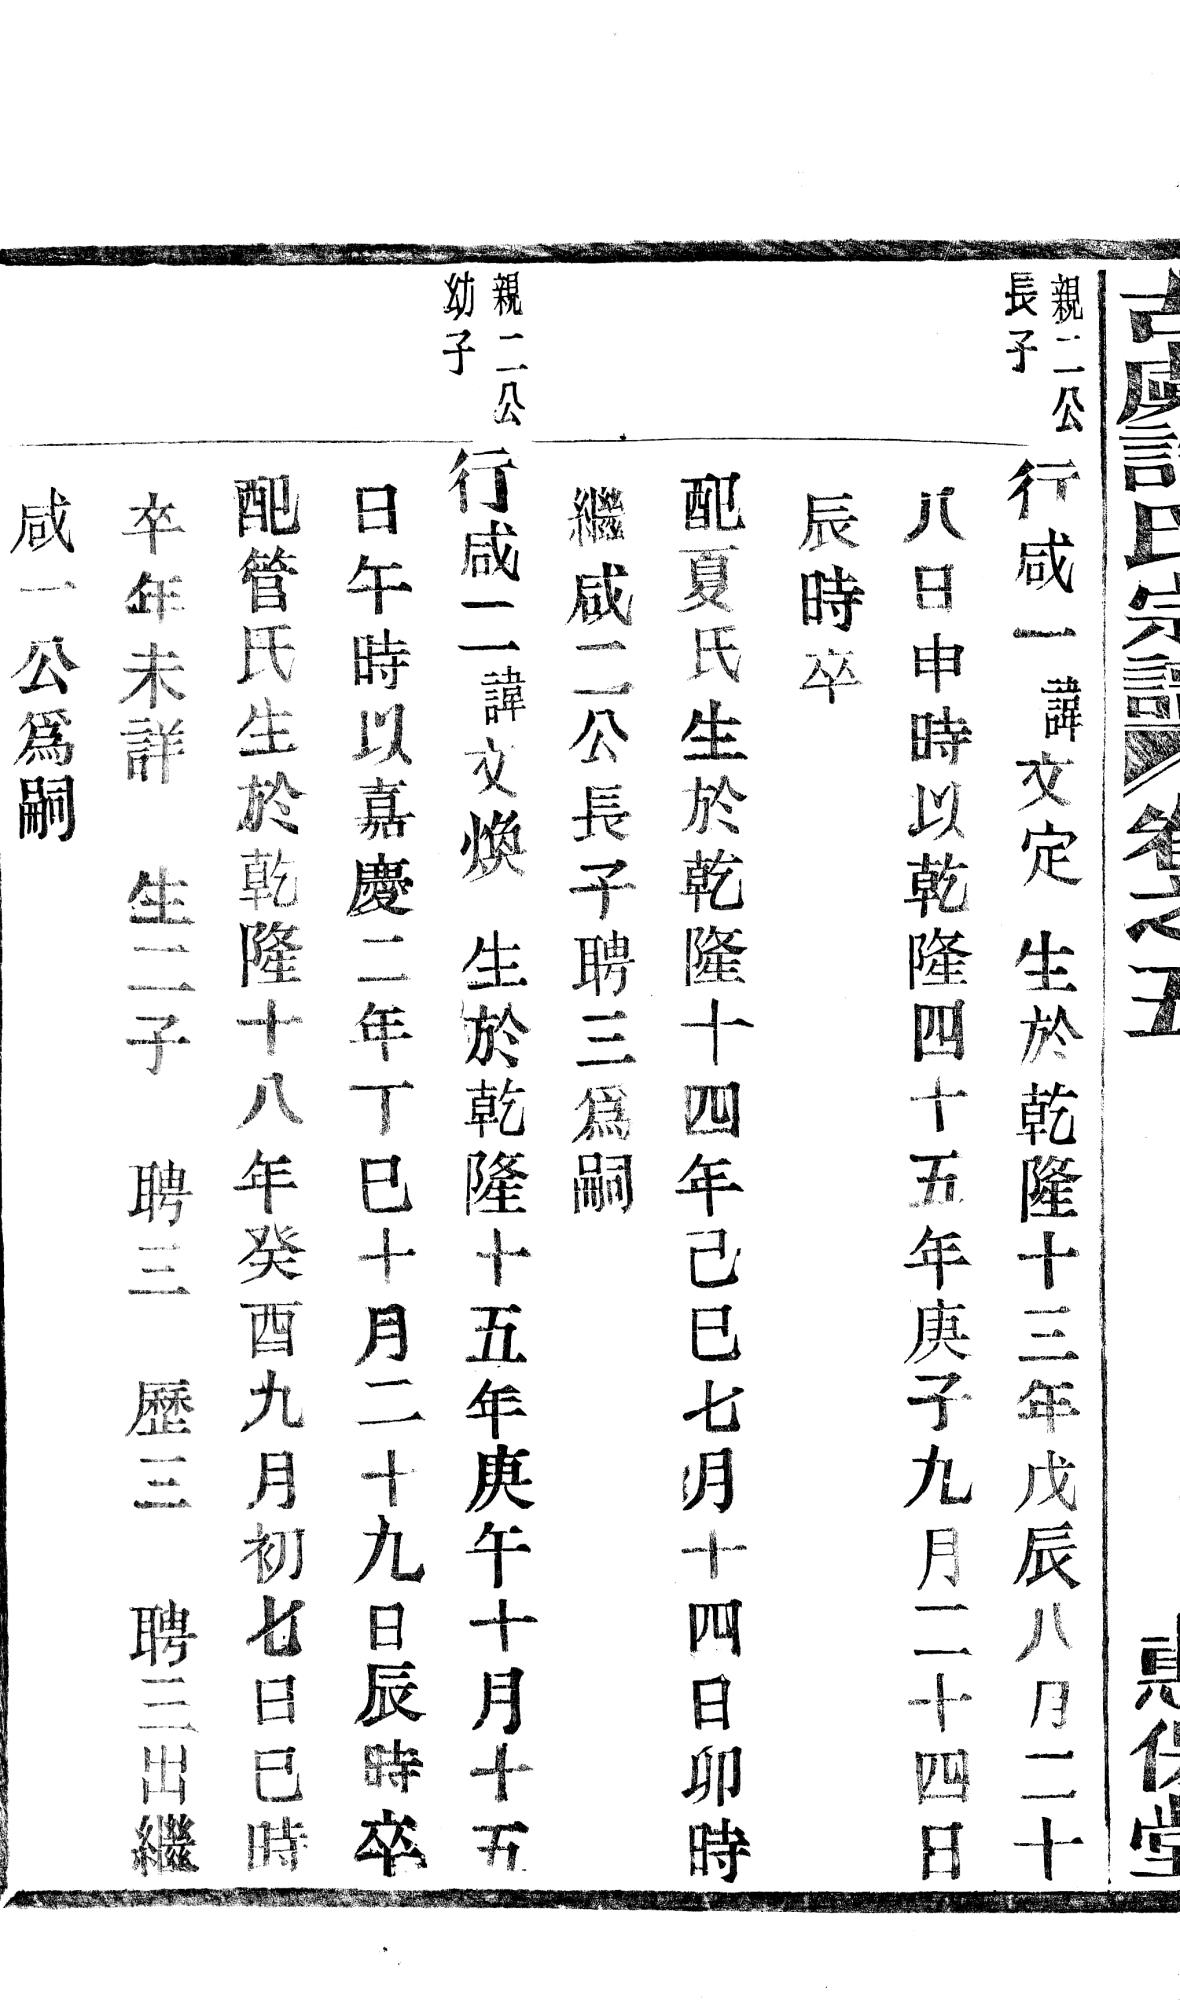 古虞許氏宗譜 卷之五 惠保堂
親二公
長子
行咸一諱文定 生於乾隆十三年戊辰八月二十
八日申時以乾隆四十五年庚子九月二十四日
辰時卒
配夏氏生於乾隆十四年己巳七月十四日卯時
繼咸二公長子聘三爲嗣
親二公
幼子
行咸二諱文煥 生於乾隆十五年庚午十月十五
日午時以嘉慶二年丁巳十月二十九日辰時卒
配管氏生於乾隆十八年癸酉九月初七日巳時
卒年未詳 生二子 聘三 歷三 聘三出繼
咸一公爲嗣